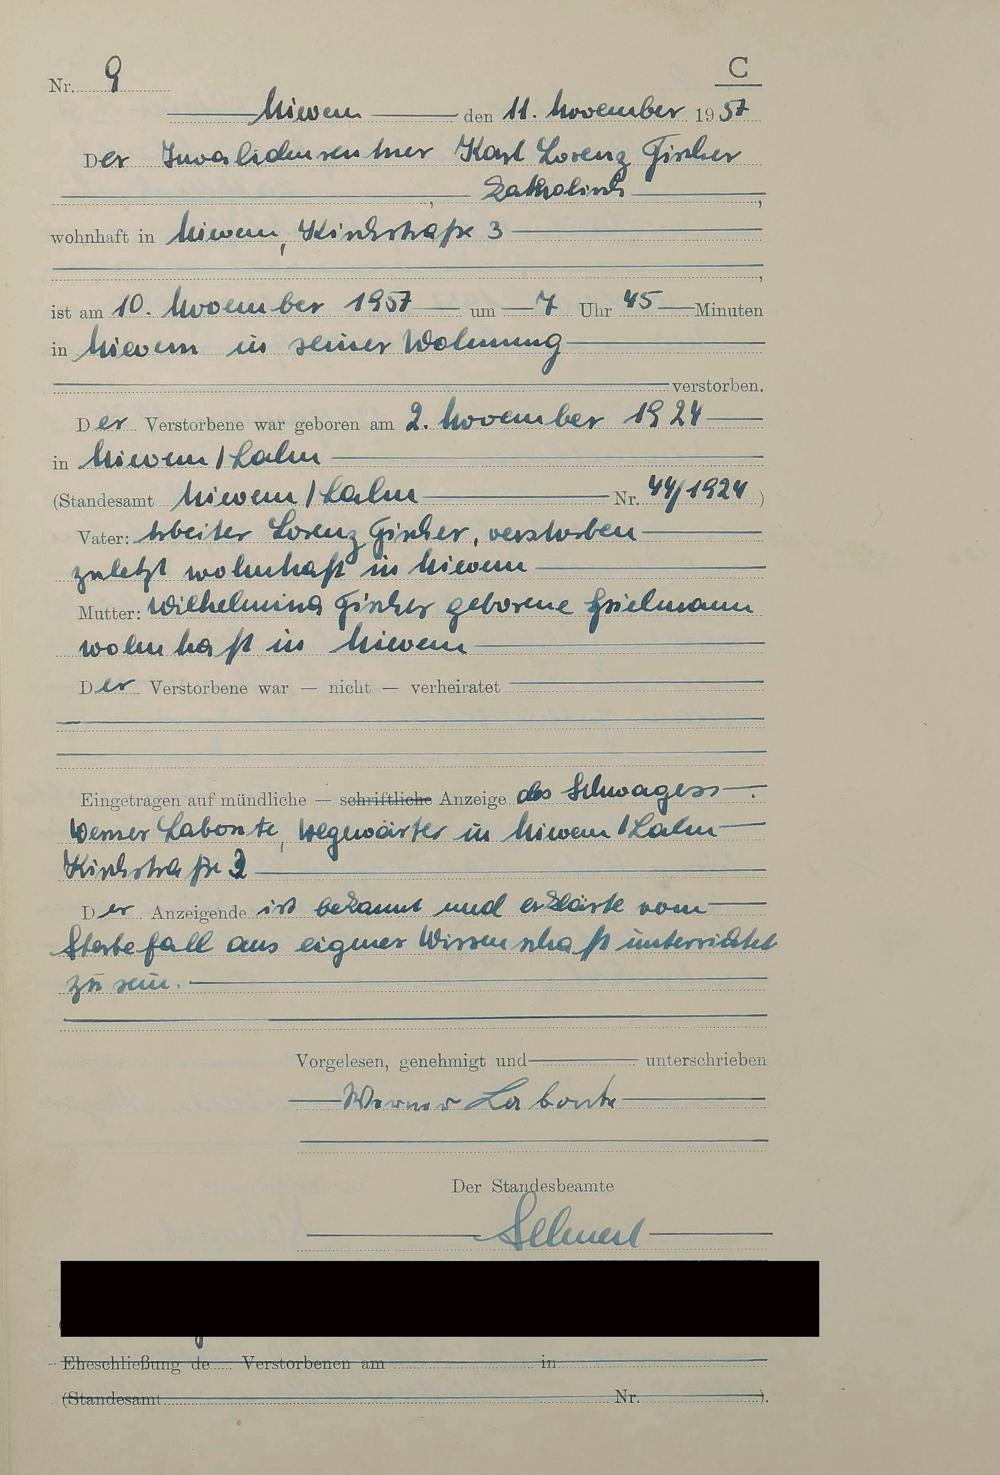 Nr. 9
C
Nievern den 11. November 1957
Der Invalidenrentner Karl Lorenz Fischer
katholisch,
wohnhaft in Nievern, Kirchstraße 3
,
ist am 10. November 1957 um 7 Uhr 45 Minuten
in Nievern in seiner Wohnung
verstorben.
Der Verstorbene war geboren am 2. November 1924
in Nievern/Lahn
(Standesamt Nievern/Lahn Nr. 44/1924)
Vater: Arbeiter Lorenz Fischer, verstorben
zuletzt wohnhaft in Nievern
Mutter: Wilhelmina Fischer geborene Spielmann
wohnhaft in Nievern
Der Verstorbene war — nicht — verheiratet
Eingetragen auf mündliche — schriftliche Anzeige des Schwagers
Werner Labonte, Wegewärter in Nievern/Lahn
Kirchstraße 3
Der Anzeigende ist bekannt und erklärte vom
Sterbefall aus eigner Wissenschaft unterrichtet
zu sein.
Vorgelesen, genehmigt und unterschrieben
Werner Labonte
Der Standesbeamte
Eheschließung de Verstorbenen am in
(Standesamt Nr. ).